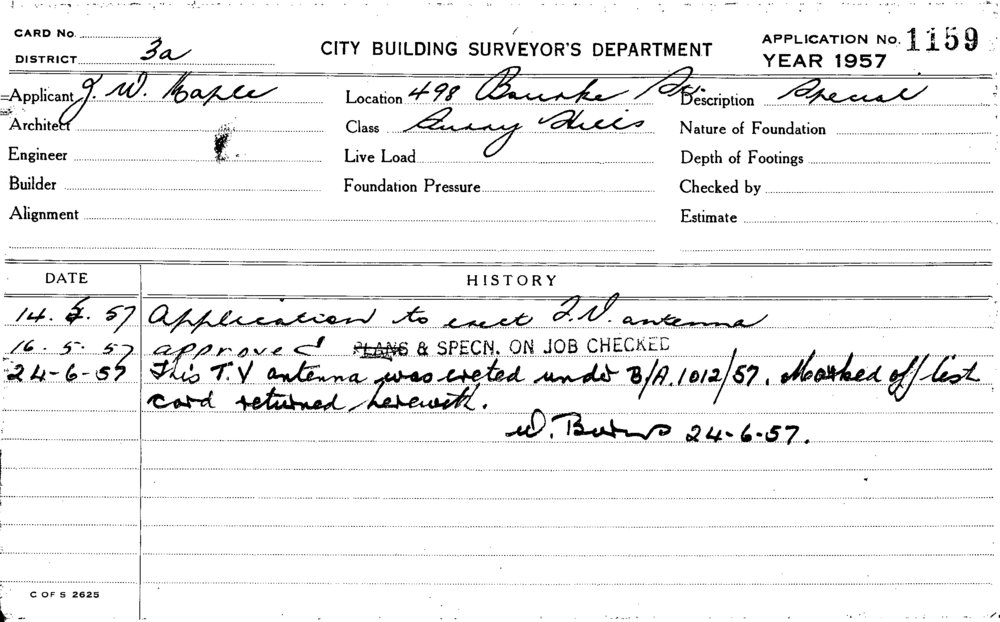 CARD No.
DISTRICT 3a
CITY BUILDING SURVEYOR'S DEPARTMENT
APPLICATION No. 1159
YEAR 1957
Applicant J. W. Maple
Location 498 Bourke St.
Description Special
Architect
Class Surry Hills
Nature of Foundation
Engineer
Live Load
Depth of Footings
Builder
Foundation Pressure
Checked by
Alignment
Estimate
DATE HISTORY
14. 5. 57 Application to erect T.V. antenna
16. 5. 57 approved PLANS & SPECN. ON JOB CHECKED
24-6-57 This T.V antenna was ereted under B/A. 1012/57. Marked off list
card returned herewith.
W. Burns 24-6-57.
C OF S 2625